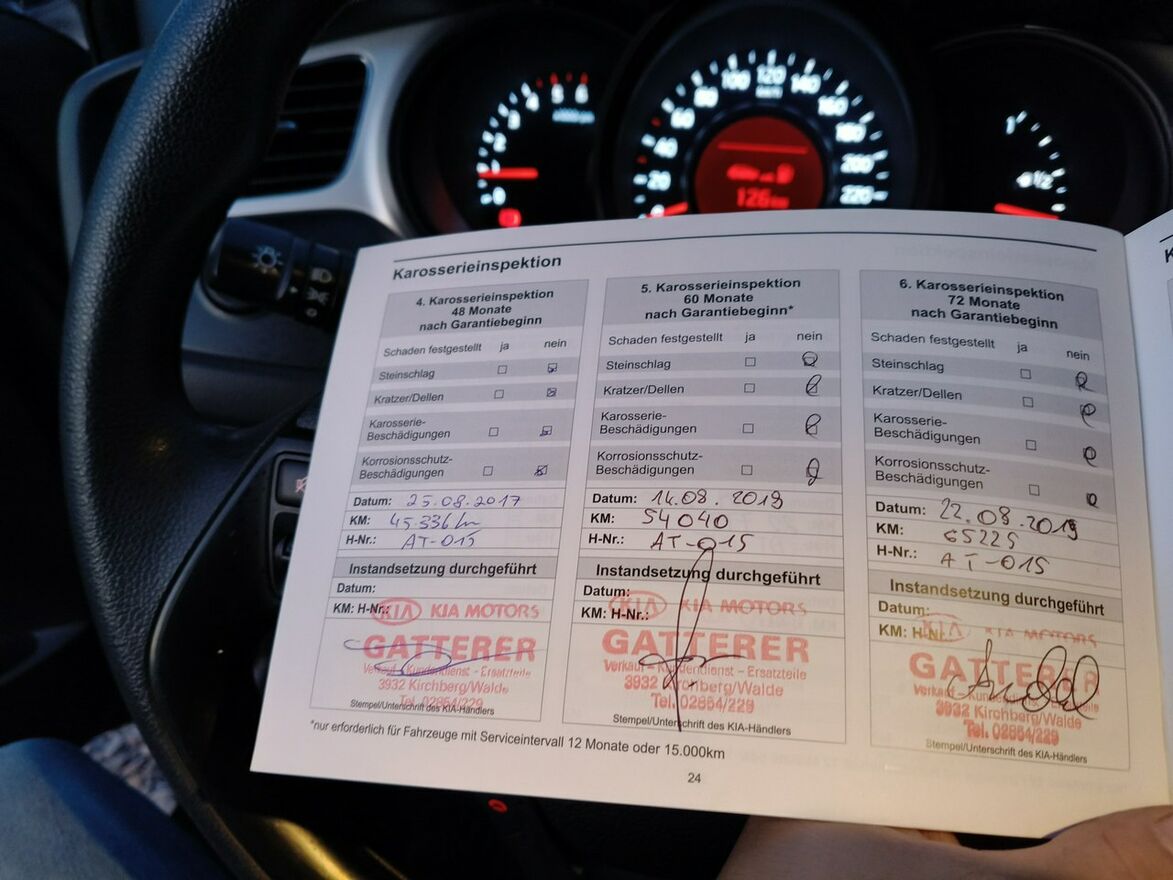 1
2
3
4
5
6
0
0
20
40
60
80
100
120
140
160
180
200
220
km/h
126km
1
1/2
Karosserieinspektion
4. Karosserieinspektion
48 Monate
nach Garantiebeginn
Schaden festgestellt ja nein
Steinschlag
Kratzer/Dellen
Karosserie-
Beschädigungen
Korrosionsschutz-
Beschädigungen
Datum: 25.08.2017
KM: 45336 km
H-Nr.: AT-015
Instandsetzung durchgeführt
Datum:
KM: H-Nr.:
KIA KIA MOTORS
GATTERER
Verkauf - Kundendienst - Ersatzteile
3932 Kirchberg/Walde
Tel. 02854/229
Stempel/Unterschrift des KIA-Händlers
5. Karosserieinspektion
60 Monate
nach Garantiebeginn*
Schaden festgestellt ja nein
Steinschlag
Kratzer/Dellen
Karosserie-
Beschädigungen
Korrosionsschutz-
Beschädigungen
Datum: 14.08.2019
KM: 54040
H-Nr.: AT-015
Instandsetzung durchgeführt
Datum:
KM: H-Nr.:
KIA KIA MOTORS
GATTERER
Verkauf - Kundendienst - Ersatzteile
3932 Kirchberg/Walde
Tel. 02854/229
Stempel/Unterschrift des KIA-Händlers
6. Karosserieinspektion
72 Monate
nach Garantiebeginn
Schaden festgestellt ja nein
Steinschlag
Kratzer/Dellen
Karosserie-
Beschädigungen
Korrosionsschutz-
Beschädigungen
Datum: 22.08.2019
KM: 65225
H-Nr.: AT-015
Instandsetzung durchgeführt
Datum:
KM: H-Nr.
KIA KIA MOTORS
GATTERER
3932 Kirchberg/Walde
Tel. 02854/229
Stempel/Unterschrift des KIA-Händlers
*nur erforderlich für Fahrzeuge mit Serviceintervall 12 Monate oder 15.000km
24